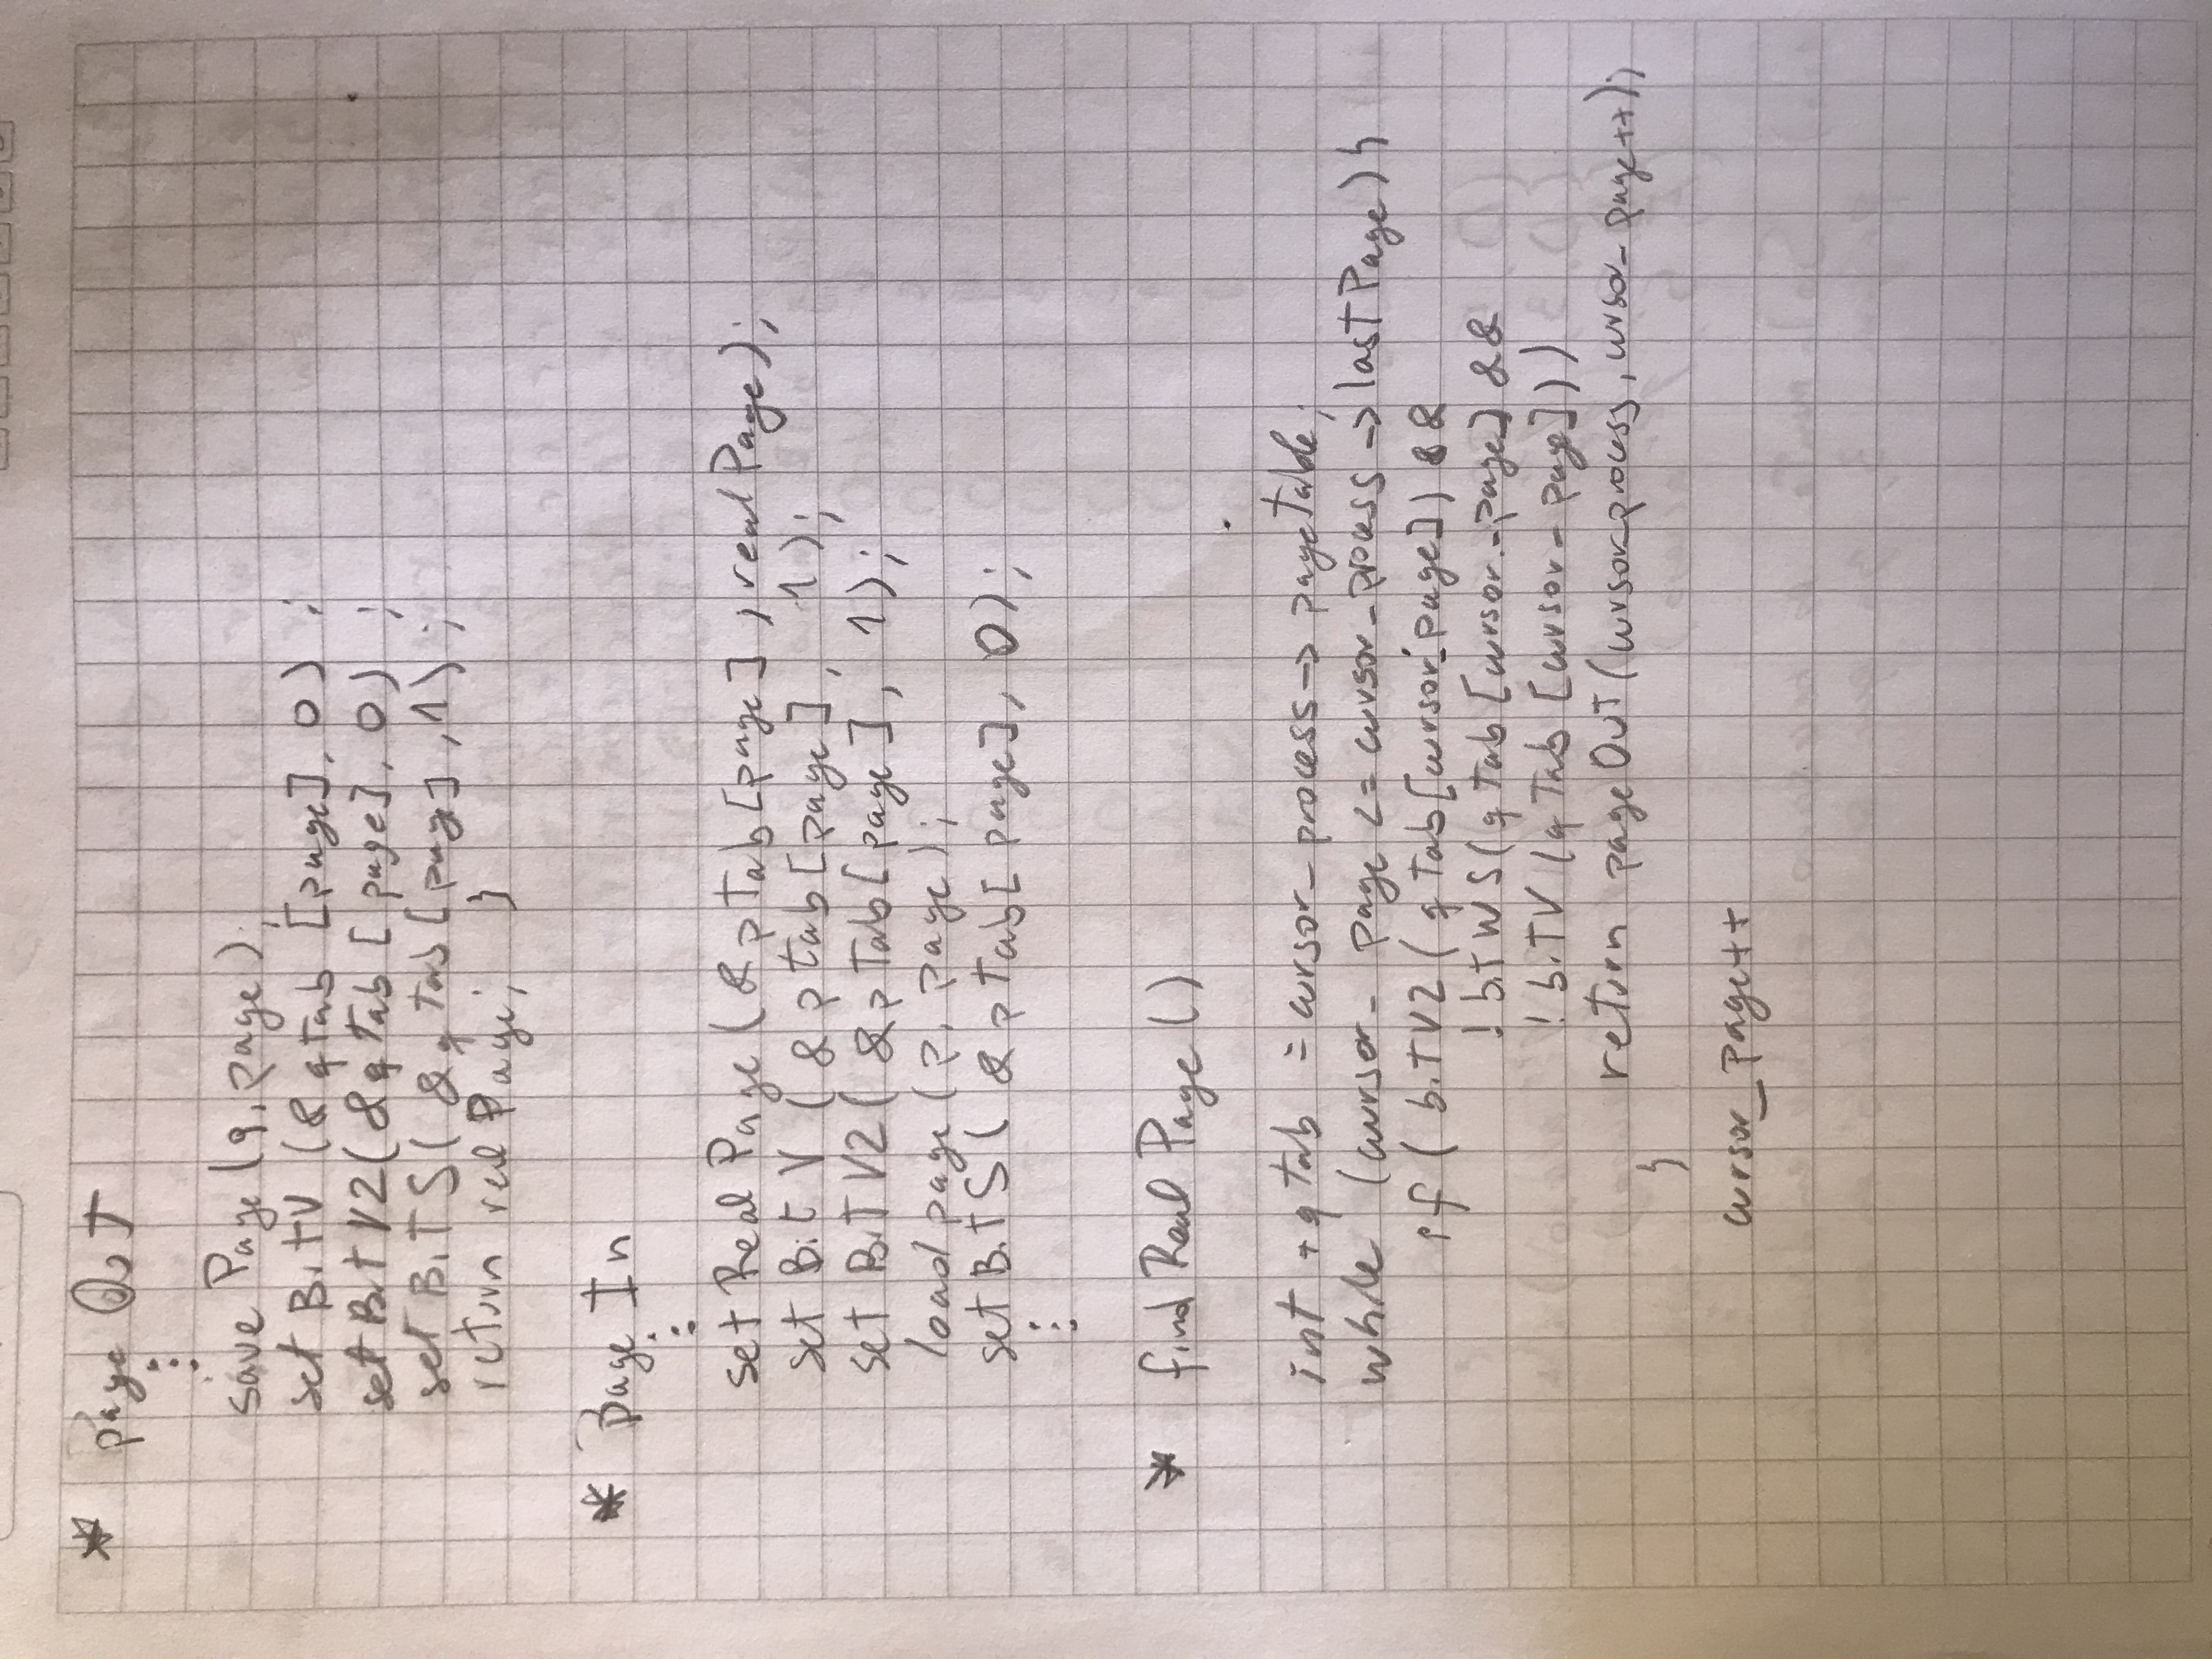 * page Out
⋮
savePage(q, page);
setBitV(&qtab[page], 0);
setBitV2(&qtab[page], 0);
setBitS(&qtab[page], 1);
return realPage; }
* Page In
⋮
setRealPage(&ptab[page], realPage);
setBitV(&ptab[page], 1);
setBitV2(&ptab[page], 1);
loadpage(p, page);
setBitS(&ptab[page], 0);
⋮
* findRealPage()
int *qtab = cursor_process->pageTable;
while (cursor_page <= cursor_process->lastPage) {
if (bitV2(qtab[cursor_page]) &&
!bitWS(qtab[cursor_page] &&
!bitV(qtab[cursor_page]))
return pageOut(cursor_process, cursor_page++);
}
cursor_page++